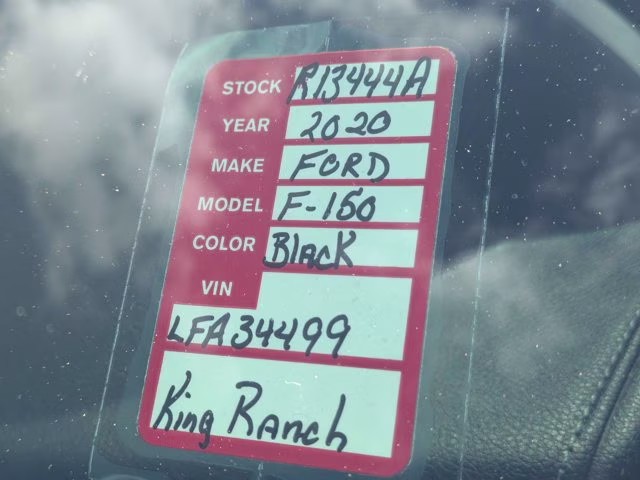 STOCK R13444A
YEAR 2020
MAKE FORD
MODEL F-150
COLOR Black
VIN
LFA34499
King Ranch